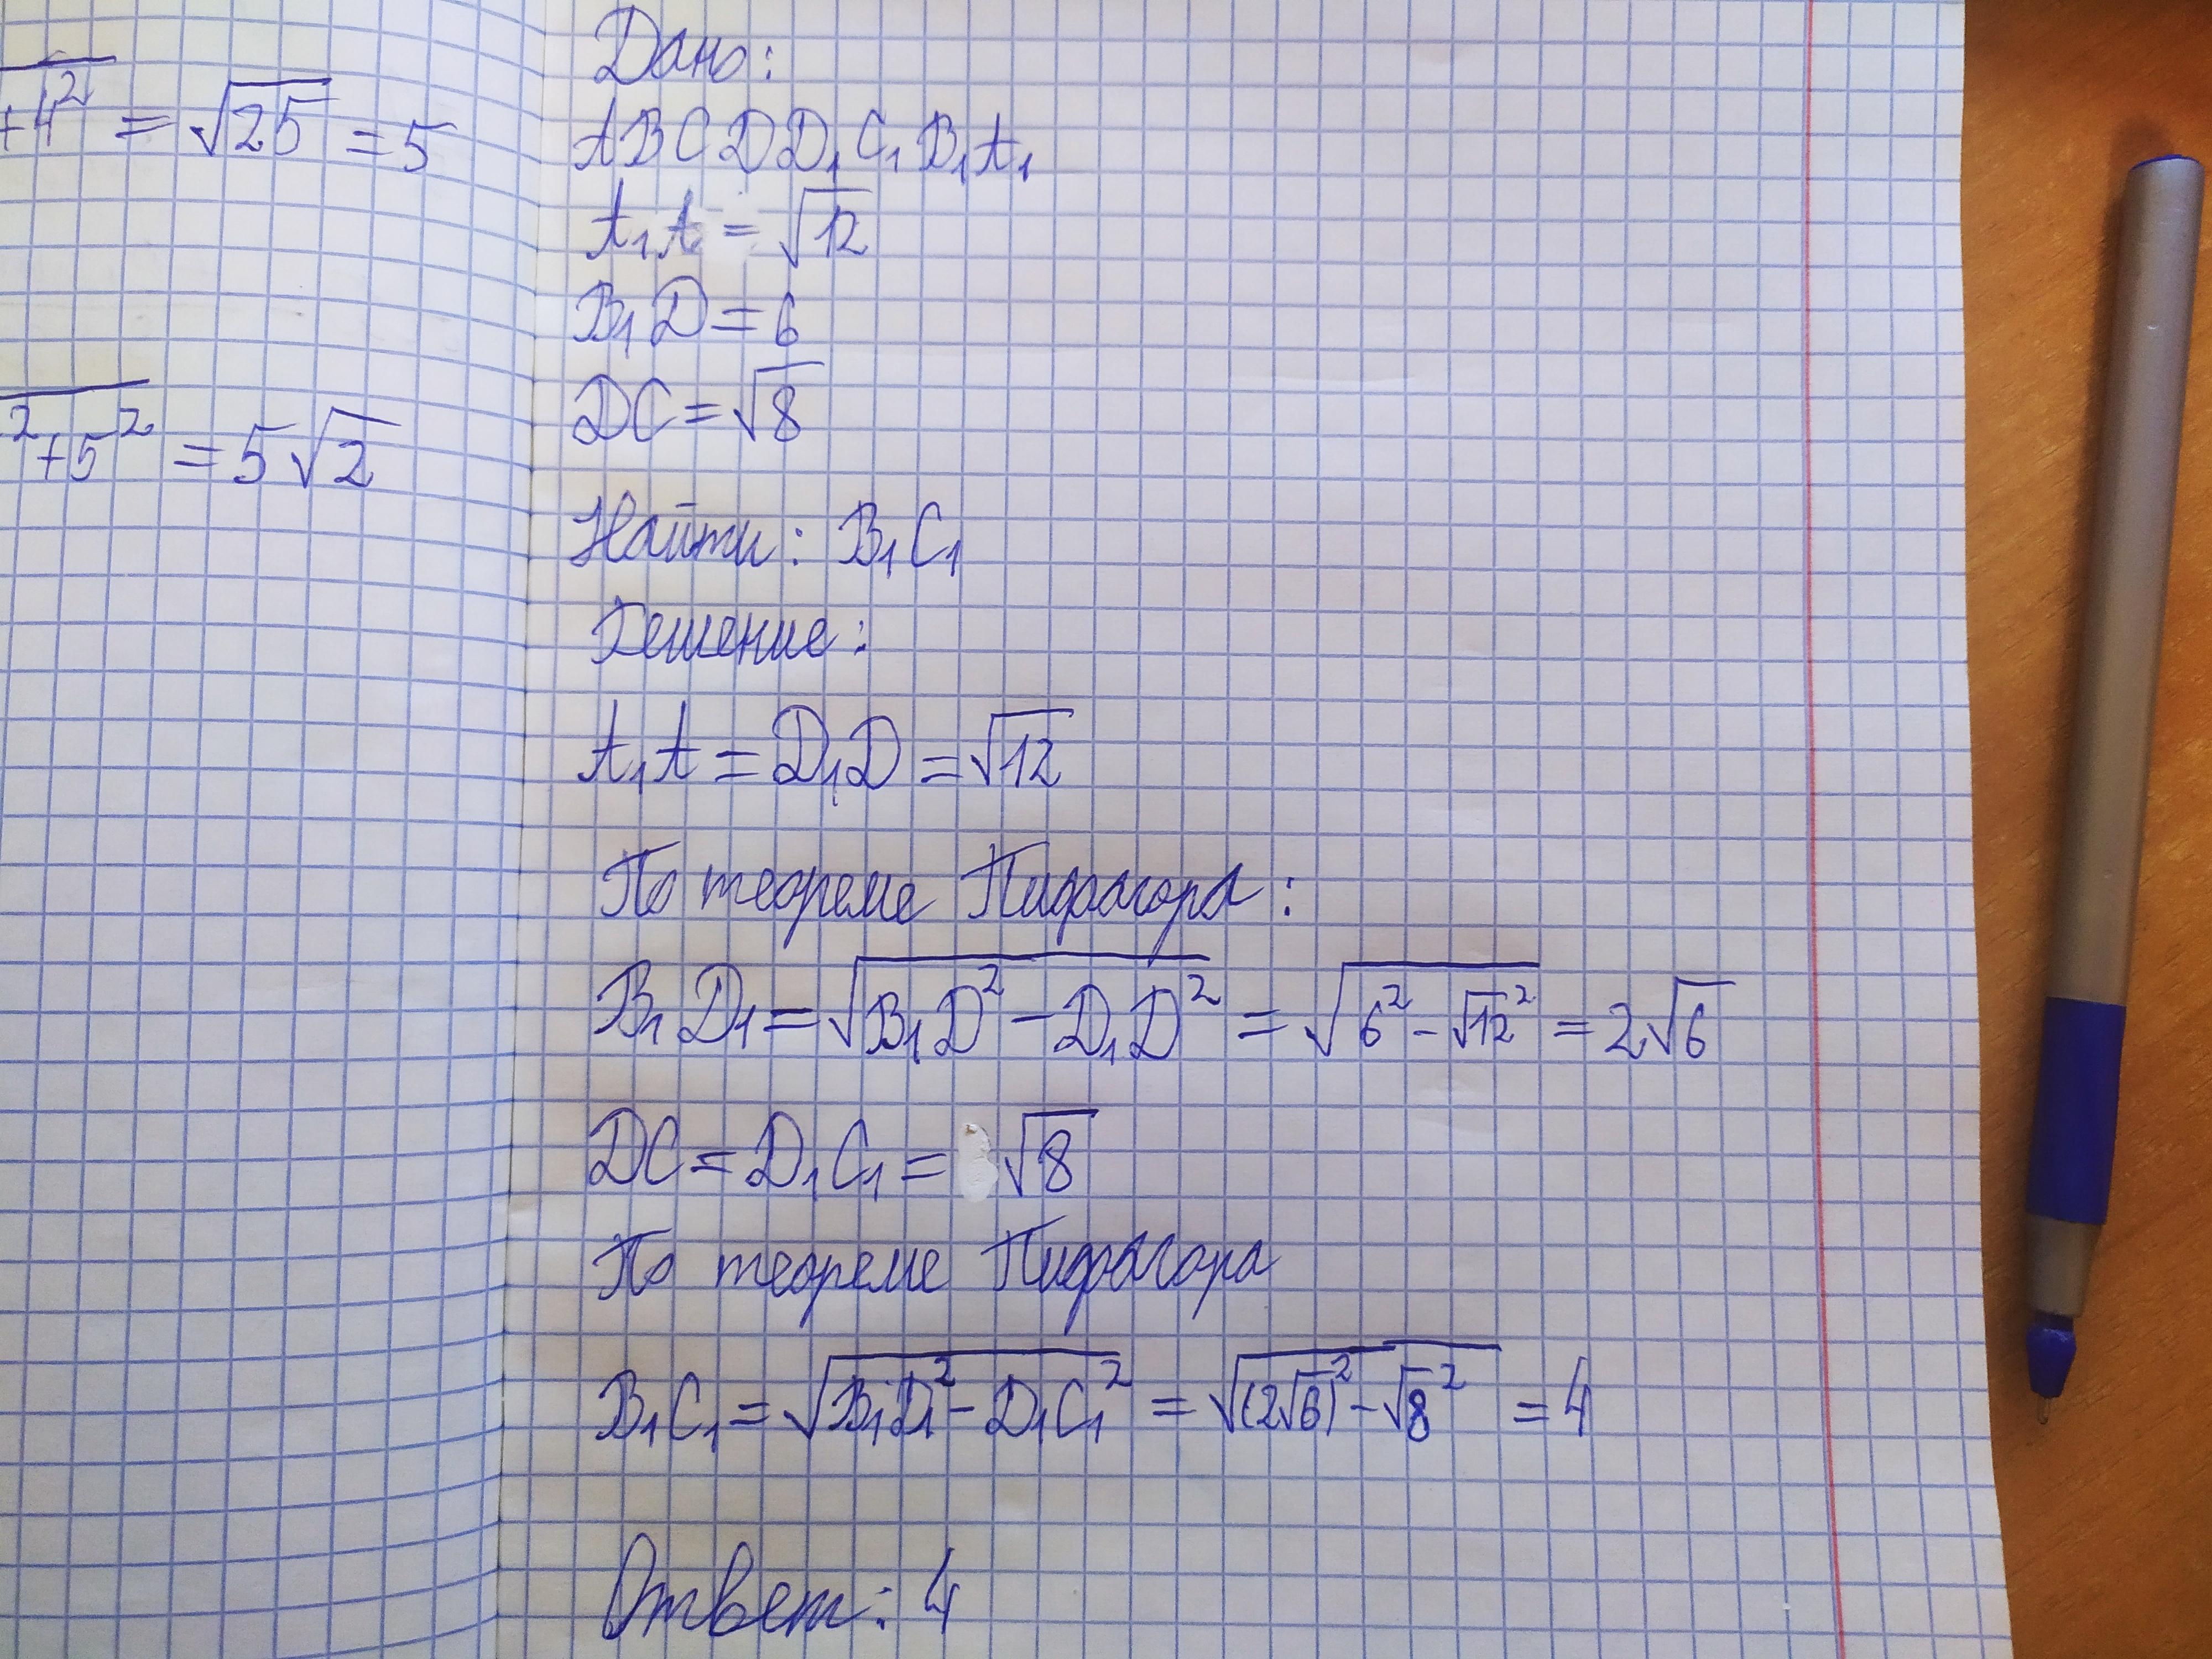 +4² = √25 = 5
² + 5² = 5√2
Дано:
ABCDD₁C₁B₁A₁
A₁A = √12
B₁D = 6
DC = √8
Найти: B₁C₁
Решение:
A₁A = D₁D = √12
По теореме Пифагора:
B₁D₁ = √(B₁D² - D₁D²) = √(6² - √12²) = 2√6
DC = D₁C₁ = √8
По теореме Пифагора
B₁C₁ = √(B₁D₁² - D₁C₁²) = √((2√6)² - √8²) = 4
Ответ: 4